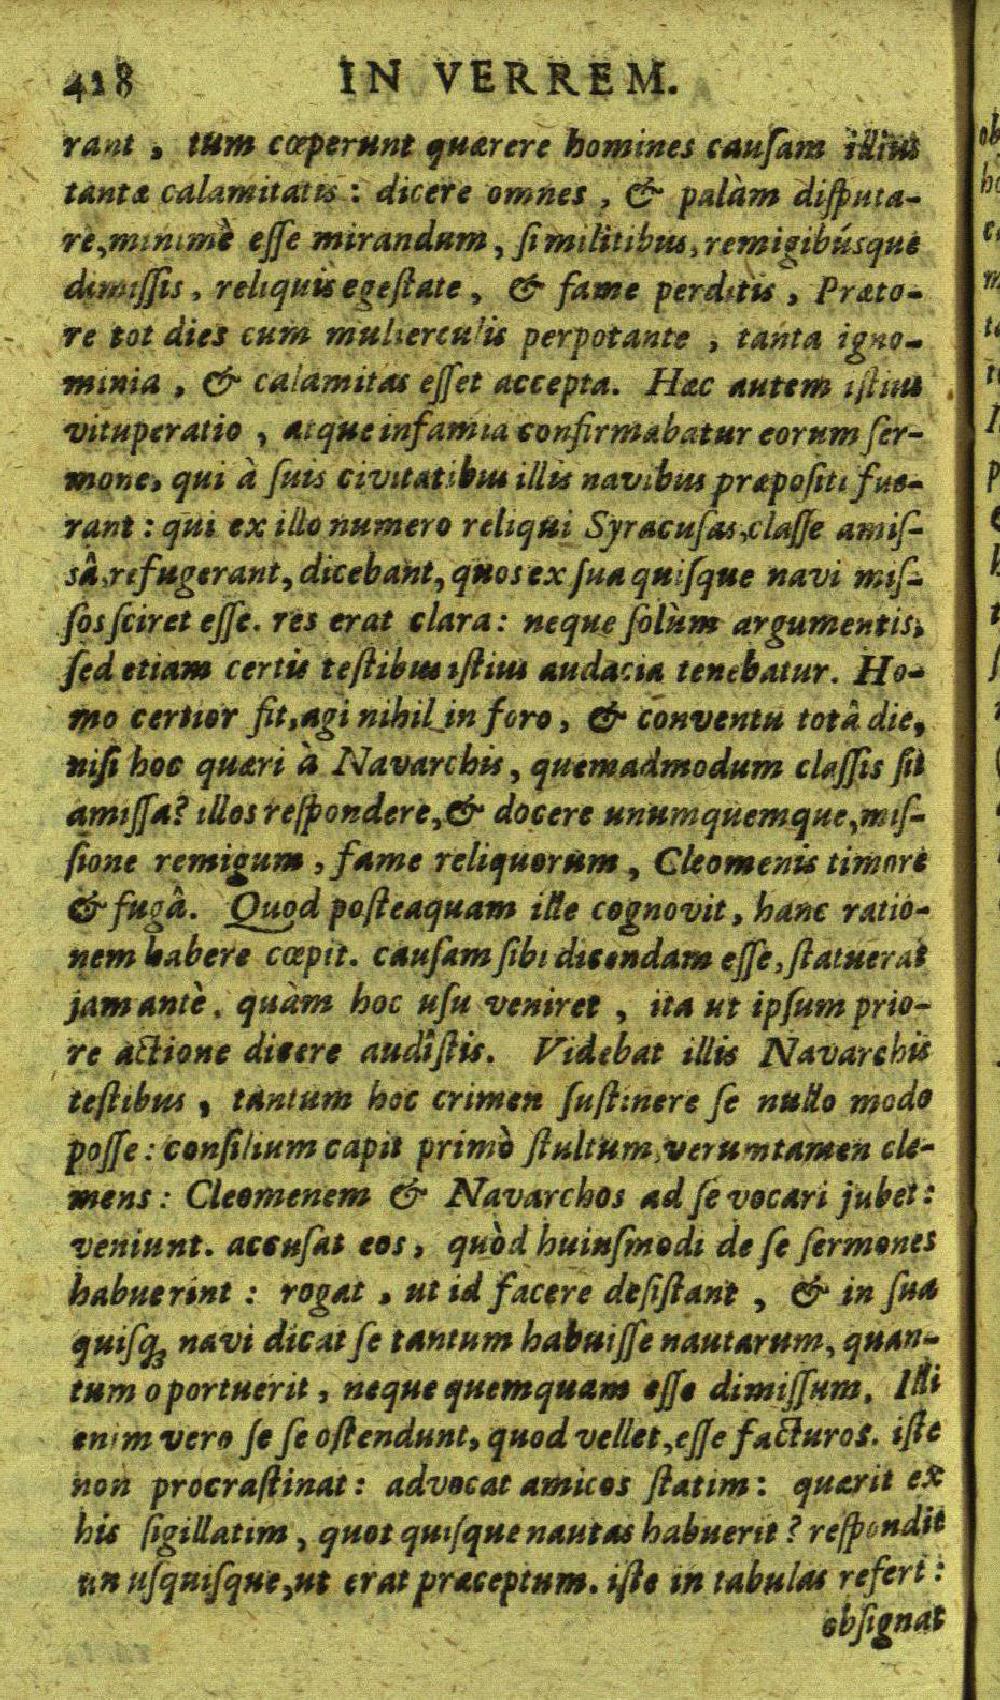 428 IN VERREM.
rant, tum cœperunt quærere homines cauſam illius
tantæ calamitatis: dicere omnes, & palàm diſputa-
re, minimè eſſe mirandum, ſi militibus, remigibúsque
dimiſſis, reliquis egeſtate, & fame perditis, Præto-
re tot dies cum mulierculis perpotante, tanta igno-
minia, & calamitas eſſet accepta. Hæc autem iſtius
vituperatio, atque infamia confirmabatur eorum ſer-
mone, qui à ſuis civitatibus illis navibus præpoſiti fue-
rant: qui ex illo numero reliqui Syracuſas, claſſe amiſ-
sâ, refugerant, dicebant, quos ex ſua quiſque navi miſ-
ſos ſciret eſſe. res erat clara: neque ſolùm argumentis,
ſed etiam certis teſtibus iſtius audacia tenebatur. Ho-
mo certior fit, agi nihil in foro, & conventu totâ die,
niſi hoc quæri à Navarchis, quemadmodum claſſis ſit
amiſſa? illos reſpondere, & docere unumquemque, miſ-
ſione remigum, fame reliquorum, Cleomenis timore
& fugâ. Quod poſteaquam ille cognovit, hanc ratio-
nem habere cœpit. cauſam ſibi dicendam eſſe, ſtatuerat
jam antè, quàm hoc uſu veniret, ita ut ipſum prio-
re actione dicere audîſtis. Videbat illis Navarchis
teſtibus, tantum hoc crimen ſuſtinere ſe nullo modo
poſſe: conſilium capit primò ſtultum, verumtamen cle-
mens: Cleomenem & Navarchos ad ſe vocari jubet:
veniunt. accuſat eos, quòd huiuſmodi de ſe ſermones
habuerint: rogat, ut id facere deſiſtant, & in ſua
quiſq; navi dicat ſe tantum habuiſſe nautarum, quan-
tum oportuerit, neque quemquam eſſe dimiſſum. Illi
enim vero ſe ſe oſtendunt, quod vellet, eſſe facturos. iſte
non procraſtinat: advocat amicos ſtatim: quærit ex
his ſigillatim, quot quiſque nautas habuerit? reſpondit
unuſquiſque, ut erat præceptum. iſte in tabulas refert:
obſignat